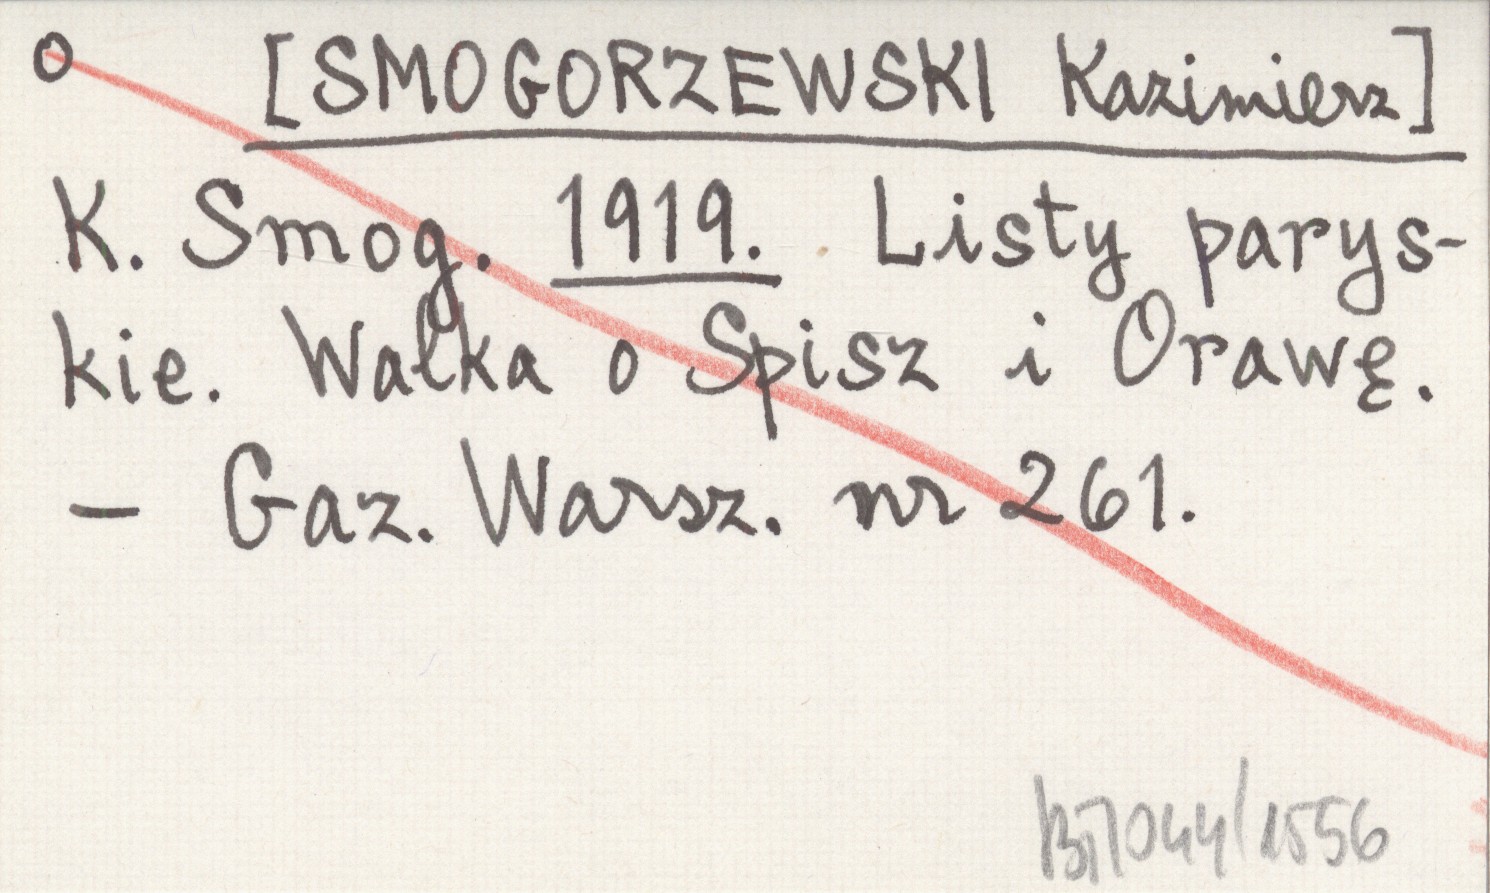 o [SMOGORZEWSKI Kazimierz]
K. Smog. 1919. Listy parys-
kie. Walka o Spisz i Orawę.
- Gaz. Warsz. nr 261.